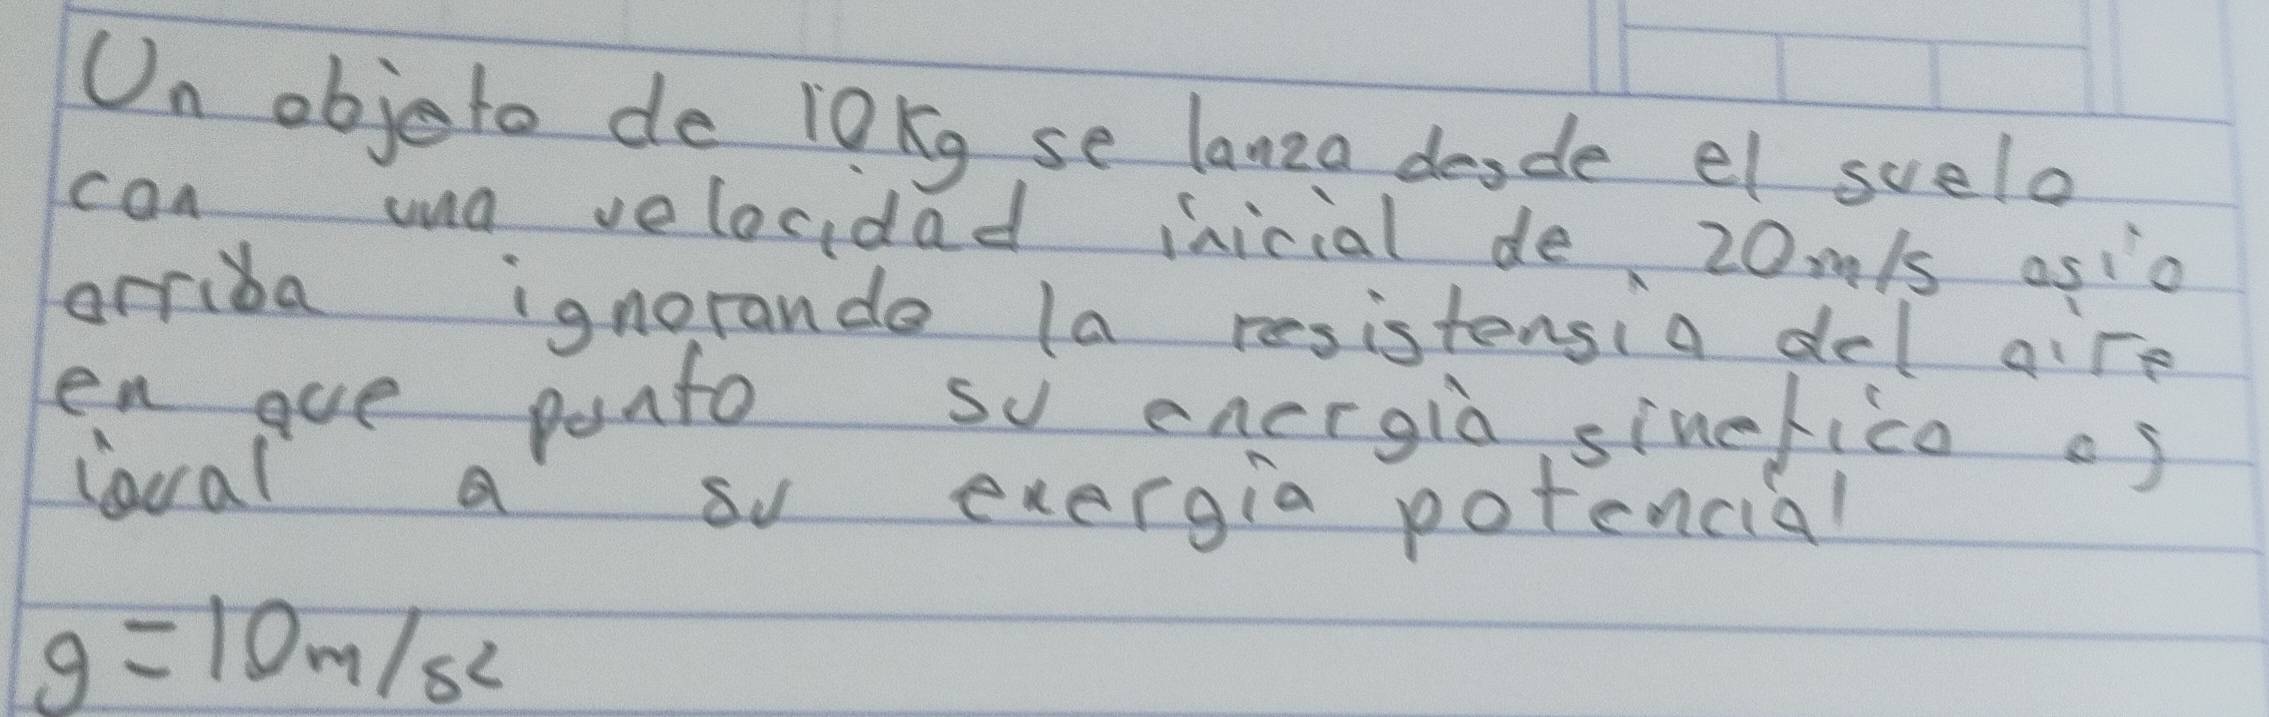 Un objeto de 10Kg se lanza desde el suelo
con una velocidad inicial de 20m/s asia
arriba ignorando la resistensia del aire
en que punto su energia sinetica es
igual a su energia potencial
g=10m/s²